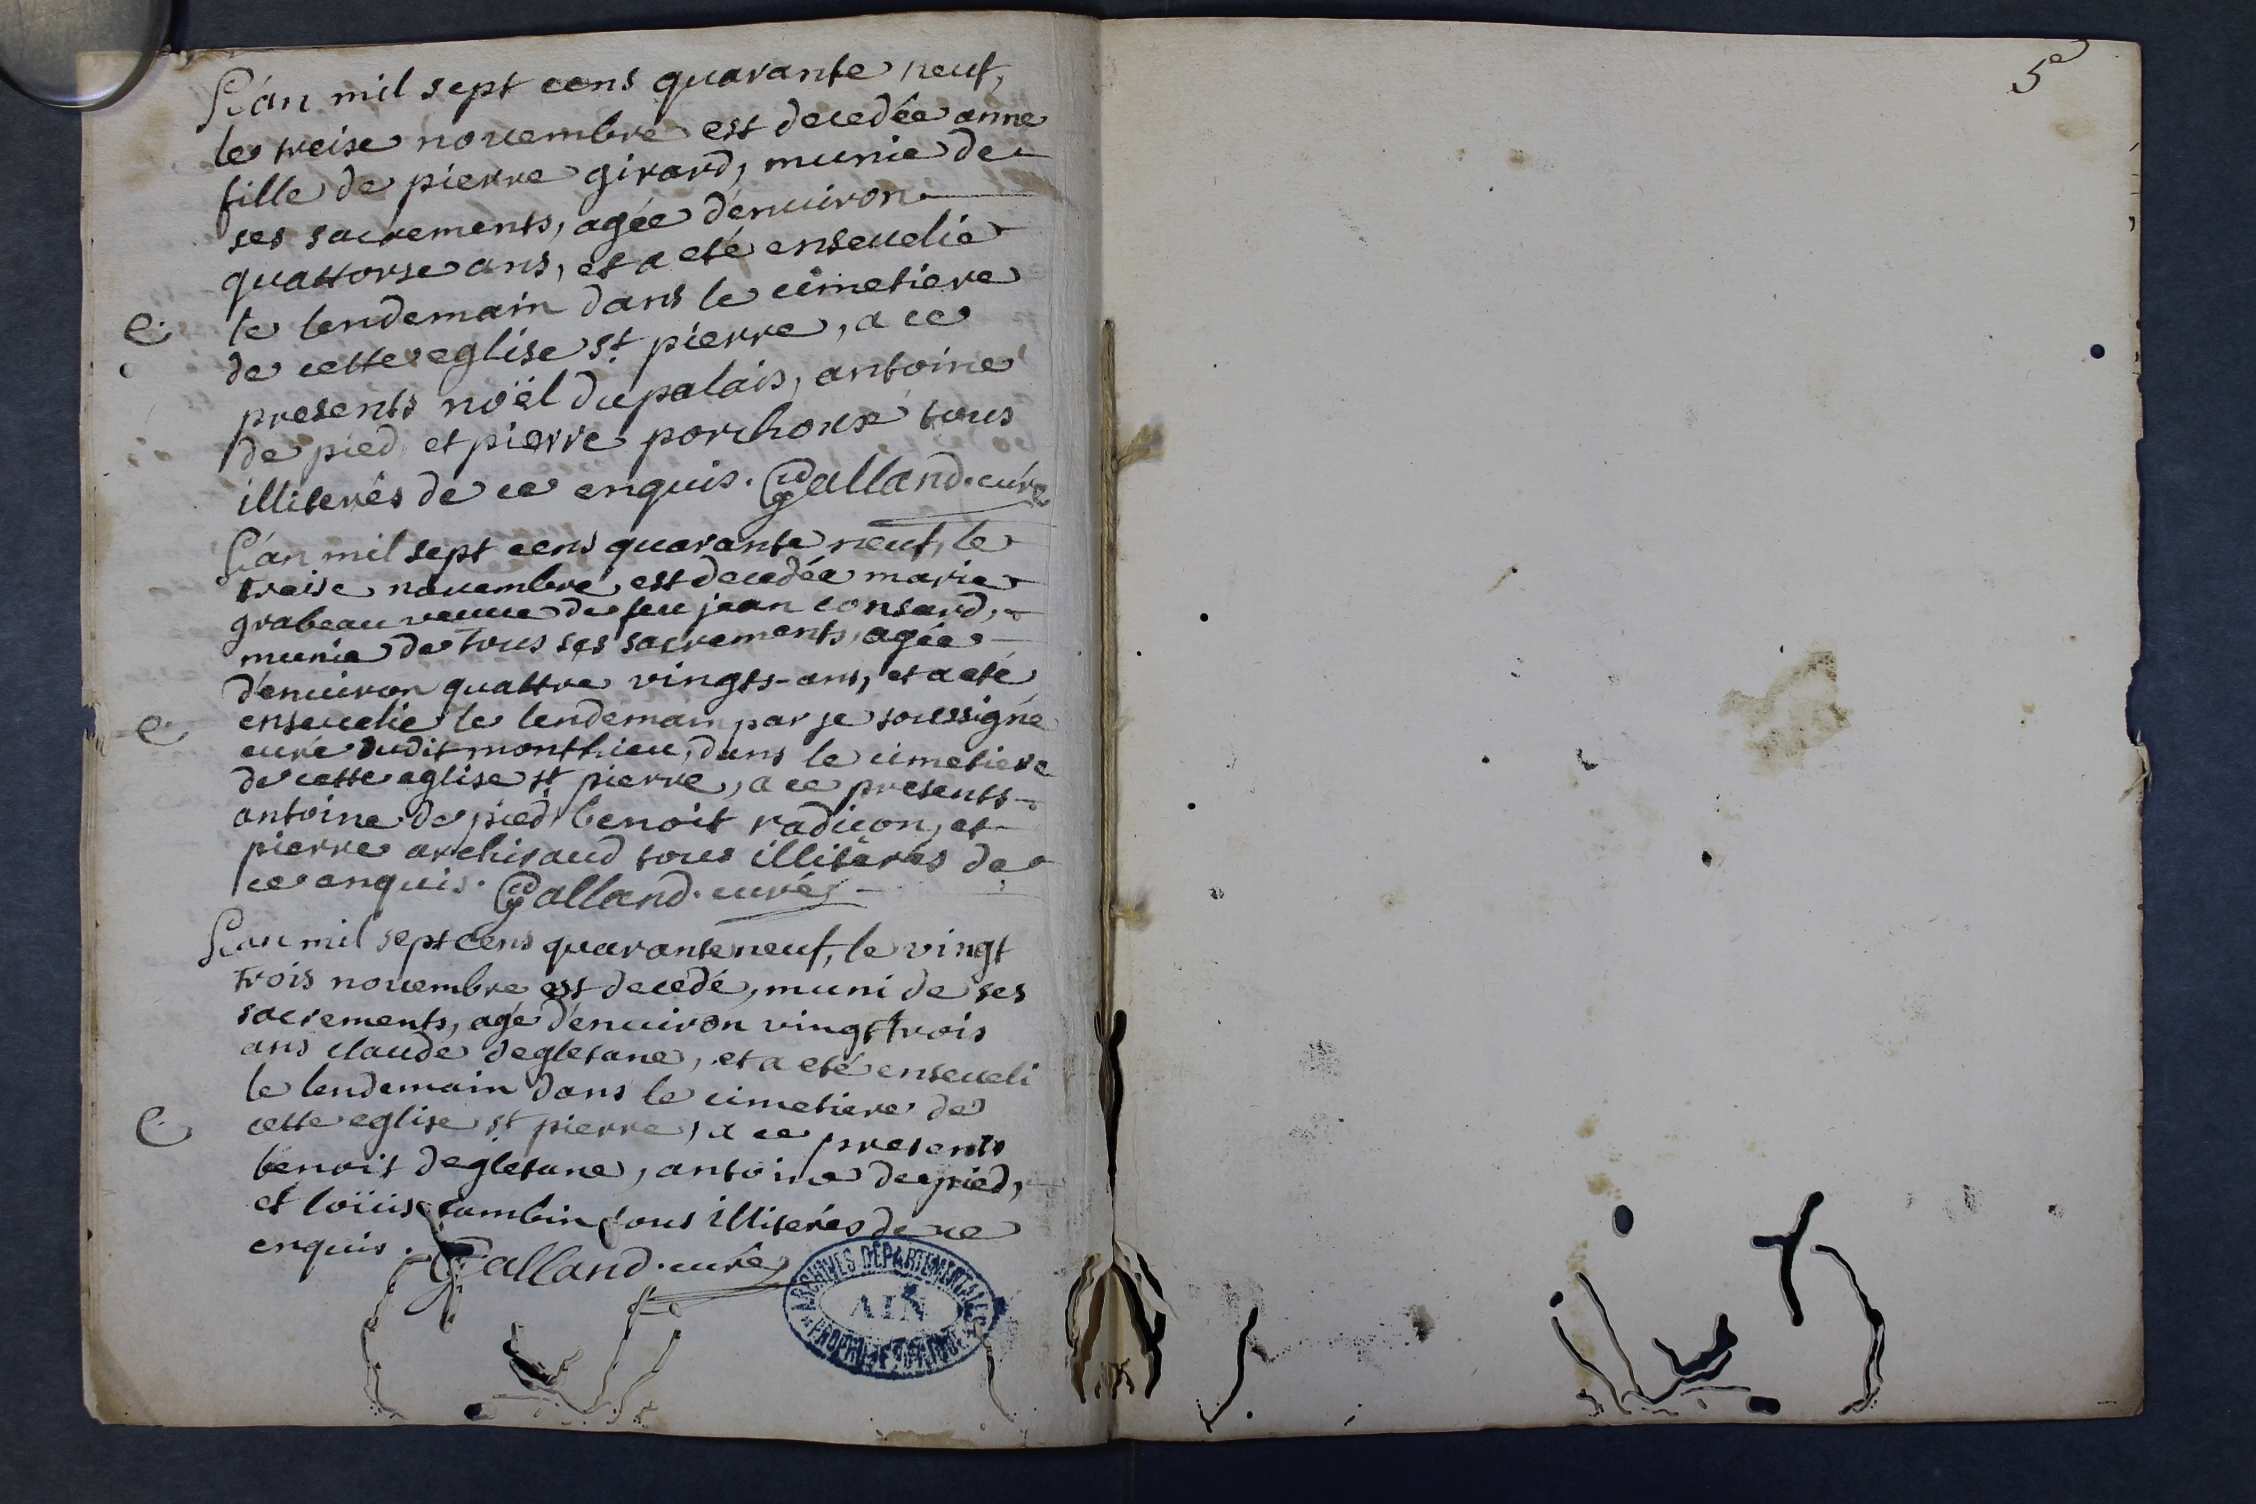 L'an mil sept cens quarante neuf,
le treise novembre est decedée anne
fille de pierre girard, munie de
ses sacrements, agée d'enuiron
quattorse ans, et a eté enseuelie
e. le lendemain dans le cimetiere
de cette eglise st pierre, a ce
presents noël dupalais, antoine
de pied et pierre porchoux tous
illiterés de ce enquis. Galland. curé
L'an mil sept cens quarante neuf, le
treise nouembre est decedée marie
grabeau veuue de feu jean consard,
munie de tous ses sacrements, agée
d'enuiron quattre vingts-ans, et a eté
e. enseuelie le lendemain par je soussigné
curé dudit monthieu, dans le cimetiere
de cette eglise st pierre, a ce presents
antoine de pied benoit radicon, et
pierre archiraud tous illiterés de
ce enquis. Galland. curé
L'an mil sept cens quarante neuf, le vingt
trois nouembre est decedé, muni de ses
sacrements, agé d'enuiron vingt trois
ans claude degletane, et a eté enseueli
le lendemain dans le cimetiere de
e. cette eglise st pierre, a ce presents
benoit degletane, antoine de pied,
et loüis tambin tous illiterés de ce
enquis. Galland. curé
ARCHIVES DÉPARTEMENTALES
AIN
PROPRIÉTÉ PUBLIQUE
5e